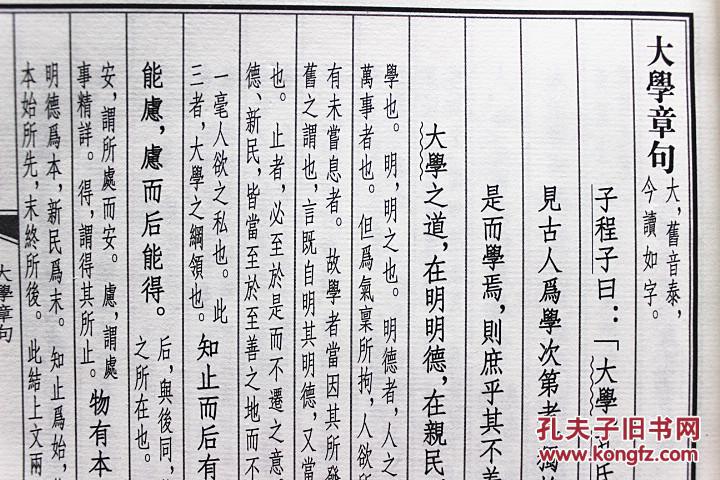 大學章句
大,舊音泰,
今讀如字。
子程子曰:「大學
見古人爲學次第者
是而學焉,則庶乎其不差
大學之道,在明明德,在親民,
學也。明,明之也。明德者,人之
萬事者也。但爲氣稟所拘,人欲所
有未嘗息者。故學者當因其所發
舊之謂也,言既自明其明德,又當
也。止者,必至於是而不遷之意。
德、新民,皆當至於至善之地而不
一毫人欲之私也。此
三者,大學之綱領也。
知止而后有
能慮,慮而后能得。
后,與後同,
之所在也。
安,謂所處而安。慮,謂處
事精詳。得,謂得其所止。
物有本
明德爲本,新民爲末。知止爲始,
本始所先,末終所後。此結上文兩
大學章句
孔夫子旧书网
www.kongfz.com